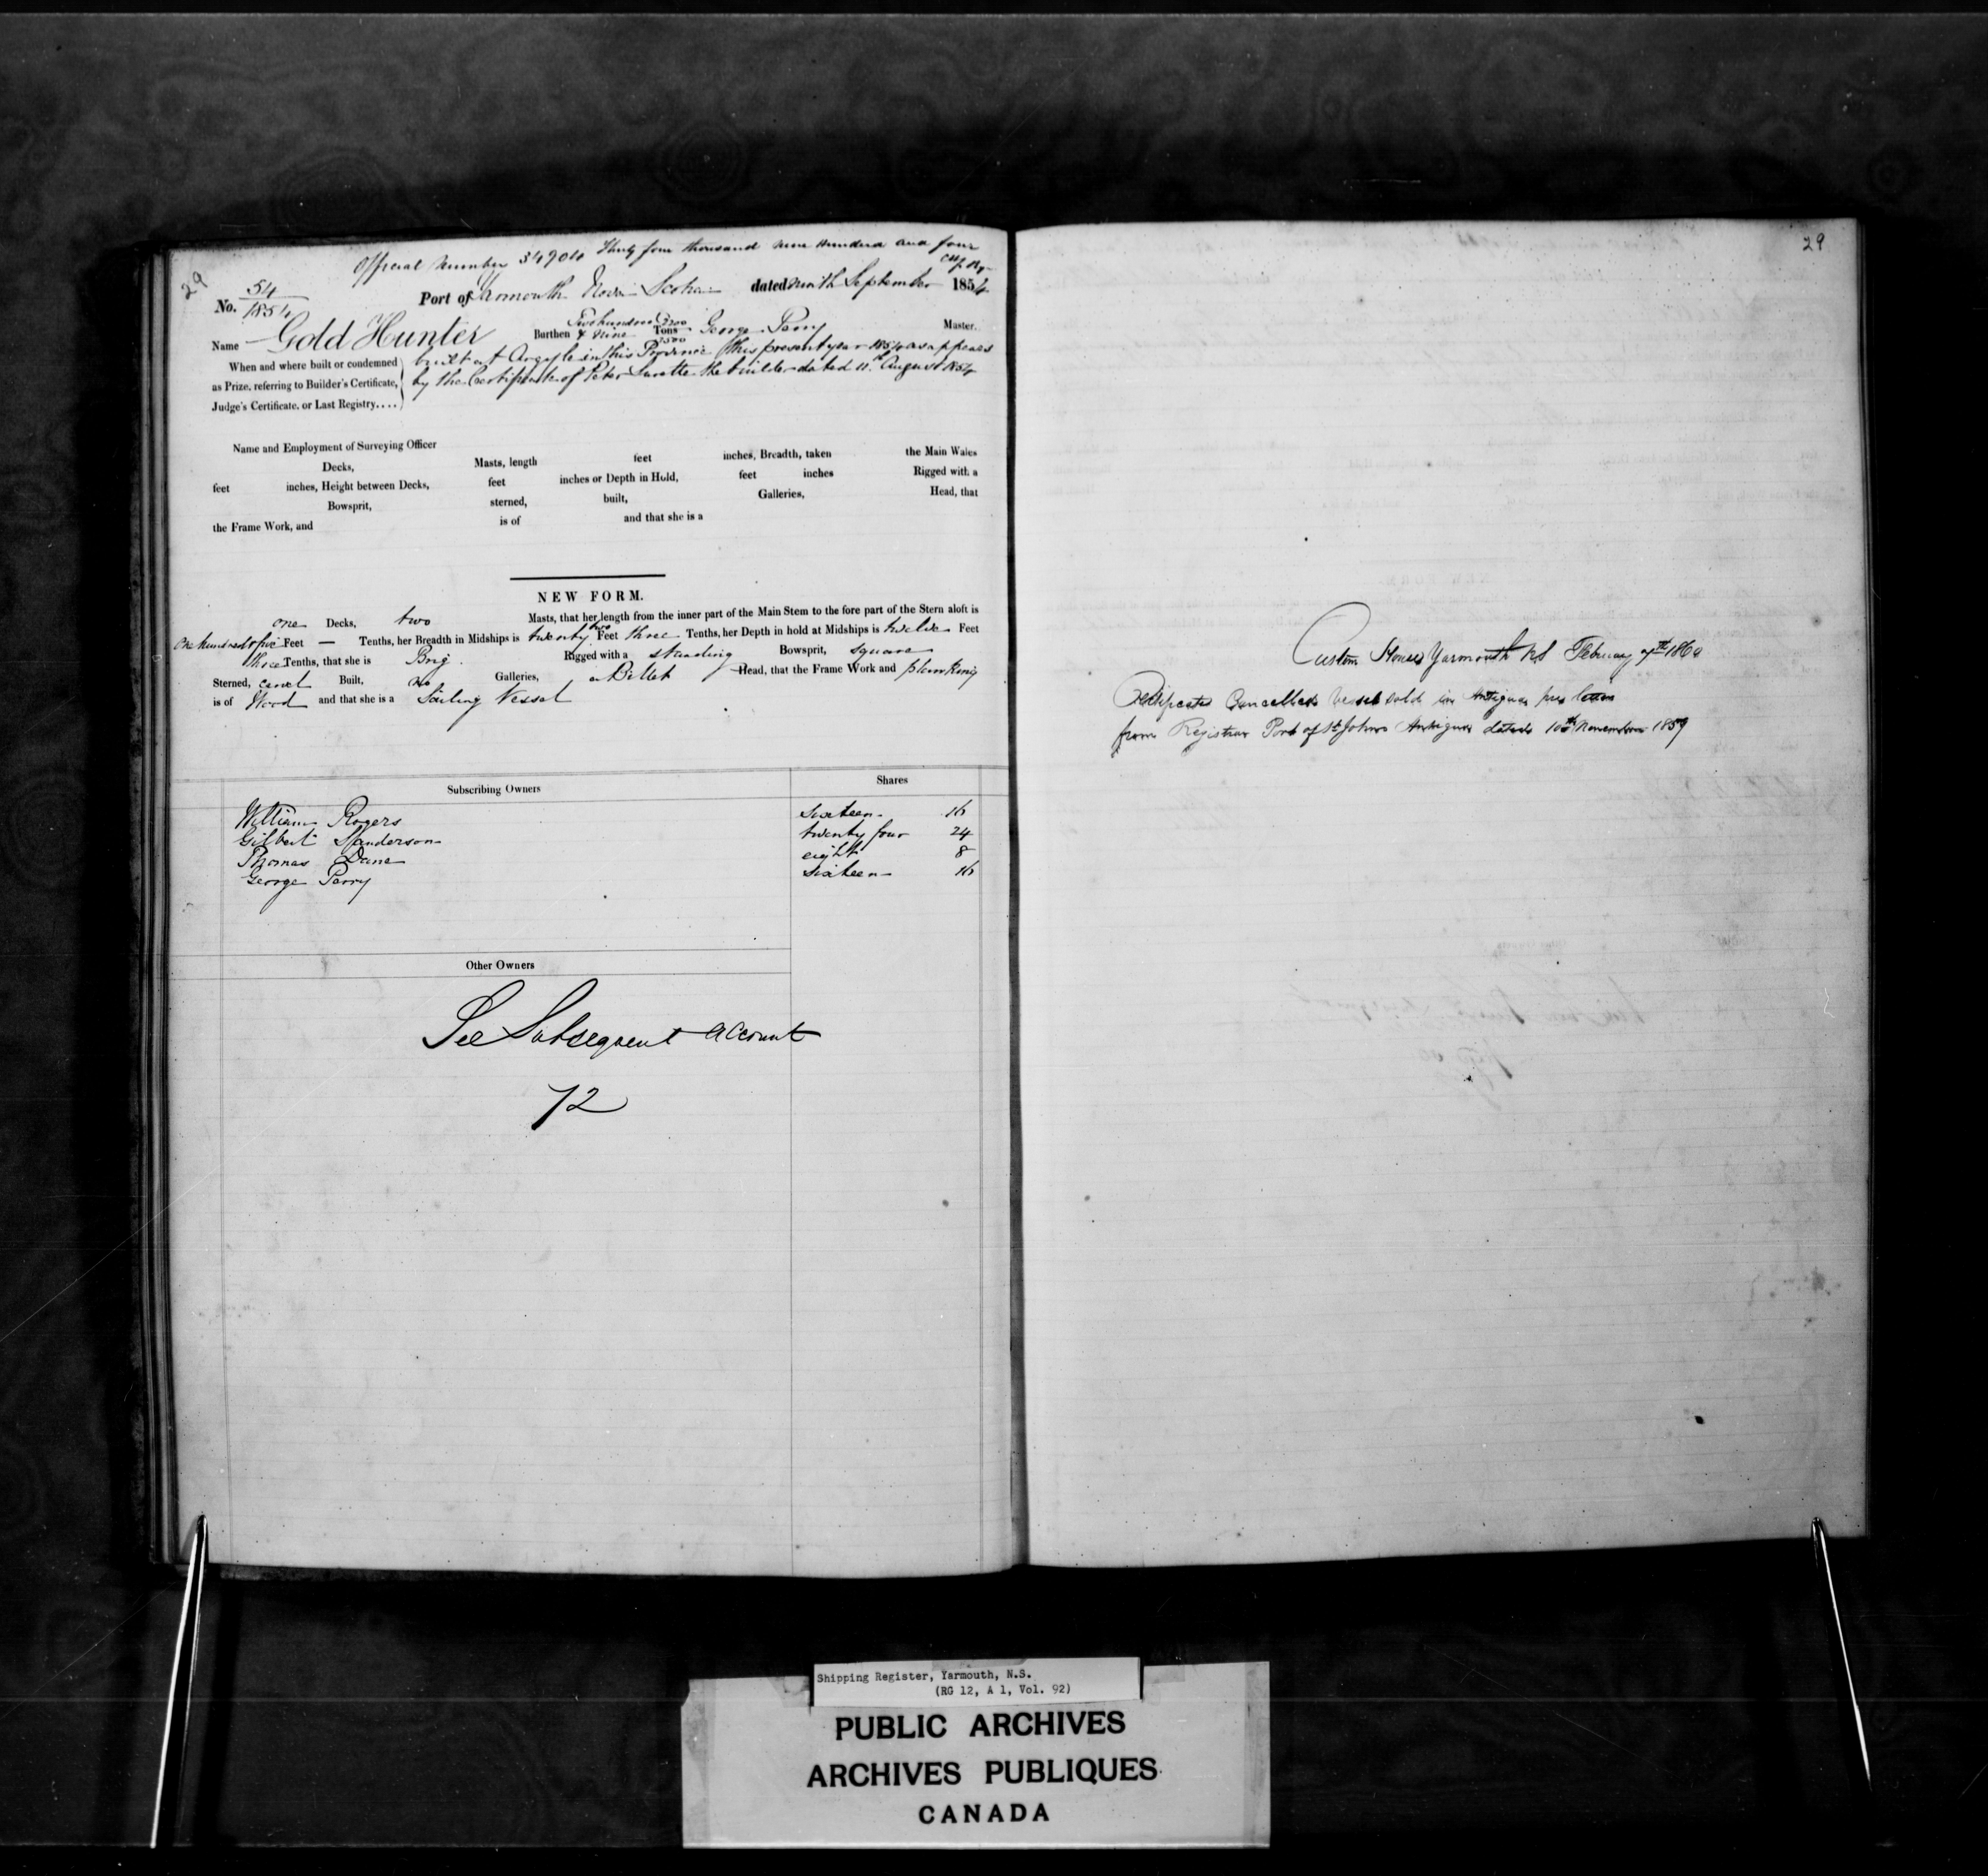 29
Official Number 34904 Thirty four thousand nine Hundred and four
No. 54/1854 Port of Yarmouth Nova Scotia dated ninth September 1854
Name Gold Hunter Burthen Two hundred & Nine Tons George Perry Master.
When and where built or condemned as Prize, referring to Builder's Certificate, Judge's Certificate, or Last Registry....
built at Argyle in this Province this present year 1854 as appears
by the Certificate of Peter Surette the builder dated 11th August 1854
Name and Employment of Surveying Officer
Decks, Masts, length feet inches, Breadth, taken the Main Wales
feet inches, Height between Decks, feet inches or Depth in Hold, feet inches Rigged with a
Bowsprit, sterned, built, Galleries, Head, that
the Frame Work, and is of and that she is a
NEW FORM.
one Decks, two Masts, that her length from the inner part of the Main Stem to the fore part of the Stern aloft is
One hundred & five Feet — Tenths, her Breadth in Midships is twenty two Feet three Tenths, her Depth in hold at Midships is twelve Feet
three Tenths, that she is Brig Rigged with a standing Bowsprit, square
Sterned, carvel Built, no Galleries, a Billet Head, that the Frame Work and planking
is of Wood and that she is a Sailing Vessel
Subscribing Owners Shares
William Rogers sixteen 16
Gilbert Sanderson twenty four 24
Thomas Dane eight 8
George Perry sixteen 16
Other Owners
See Subsequent Account
72
29
Custom House Yarmouth NS February 7th 1860
Certificate Cancelled vessel sold in Antigua per letter
from Registrar Port of St Johns Antigua dated 10th November 1859
Shipping Register, Yarmouth, N.S.
(RG 12, A 1, Vol. 92)
PUBLIC ARCHIVES
ARCHIVES PUBLIQUES
CANADA